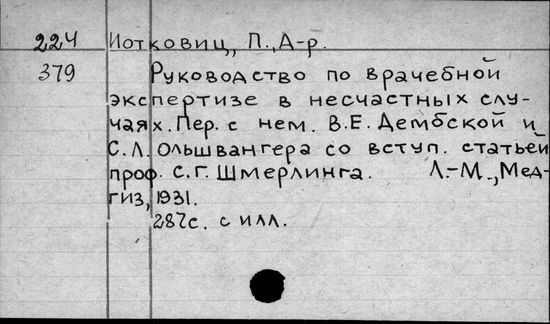 224 Иотковиц, П., Д-р.
379 Руководство по врачебной
экспертизе в несчастных слу-
чаях. Пер. с нем. В.Е. Дембской и
С.Л. Ольшвангера со вступ. статьей
проф. С.Г. Шмерлинга. Л.-М., Мед-
гиз, 1931.
287с. с илл.